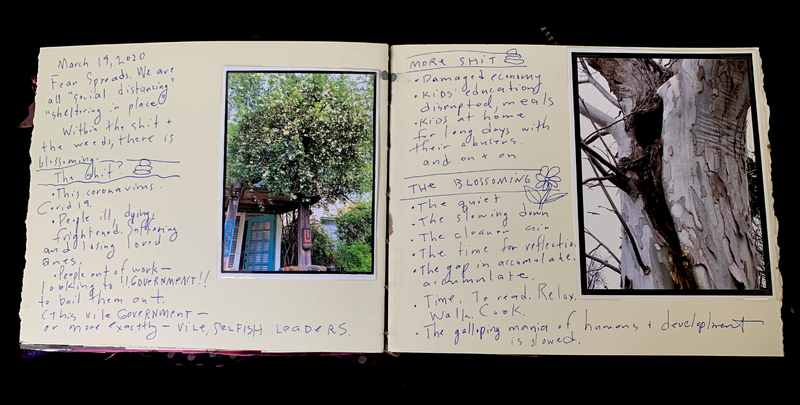 March 19, 2020
Fear Spreads. We are
all "social distancing"
"sheltering in place"
Within the shit +
the weeds, there is
blossoming.
The Shit?
• This coronavirus.
Covid 19.
• People ill, dying,
frightened. Suffering
and losing loved
ones.
• People out of work—
looking to !!GOVERNMENT!!
to bail them out.
(This vile GOVERNMENT—
or more exactly — VILE, SELFISH LEADERS.
MORE SHIT
• Damaged economy
• Kids' education
disrupted, meals
• Kids at home
for long days with
their abusers.
and on + on
THE BLOSSOMING
• The quiet
• The slowing down
• The cleaner air
• The time for reflection
• The gap in accumulate,
accumulate.
• Time. To read. Relax.
Walk. Cook.
• The galloping mania of humans + development
is slowed.